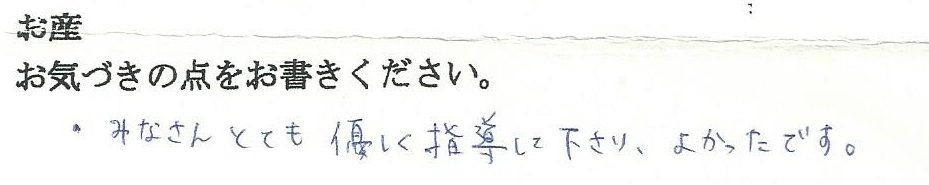 お産
お気づきの点をお書きください。
・みなさんとても優しく指導して下さり、よかったです。